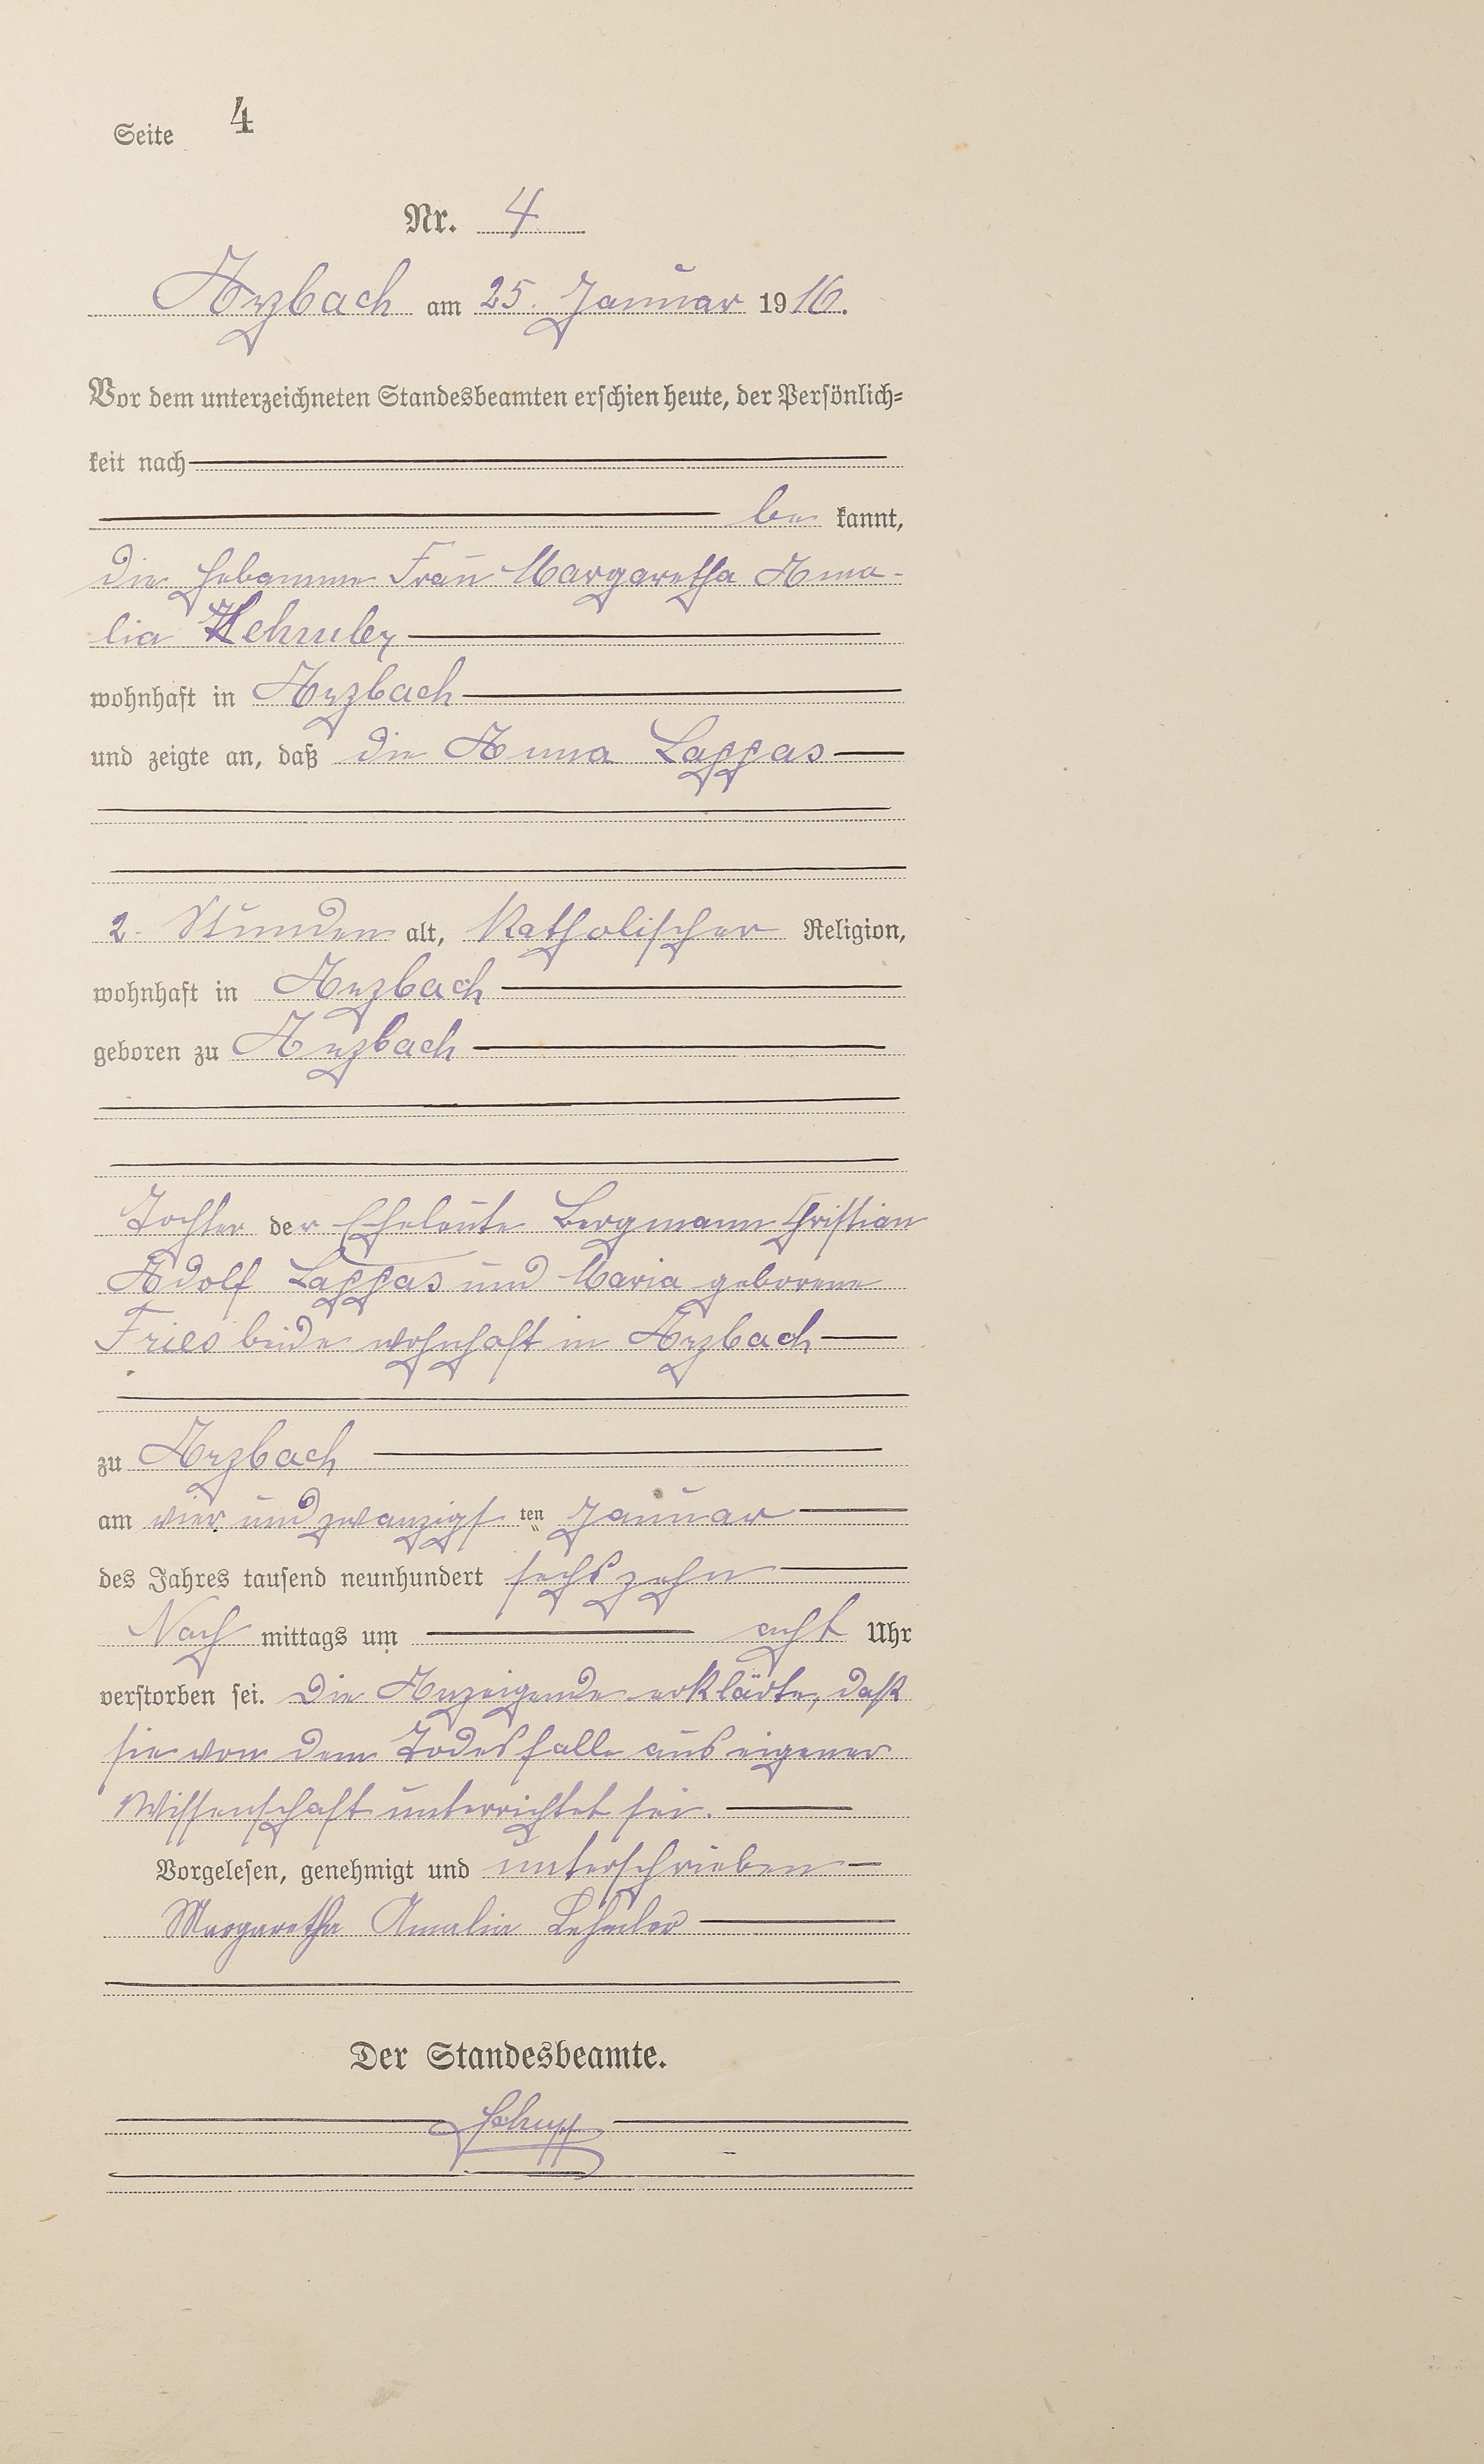 Seite 4
Nr. 4
Arzbach am 25. Januar 1916.
Vor dem unterzeichneten Standesbeamten erschien heute, der Persönlich-
keit nach
be kannt,
die Hebamme Frau Margaretha Ama-
lia
wohnhaft in Arzbach
und zeigte an, daß die Anna Lappas
2. Stunden alt, Katholischer Religion,
wohnhaft in Arzbach
geboren zu Arzbach
Tochter der Eheleute Bergmann Christian
Adolf Lappas und Maria geborene
Fries beide wohnhaft in Arzbach
zu Arzbach
am vier und zwanzigs ten Januar
des Jahres tausend neunhundert sechszehn
Nach mittags um acht Uhr
verstorben sei. Die Anzeigende erklärte, daß
sie von dem Todesfalle aus eigener
Wissenschaft unterrichtet sei.
Vorgelesen, genehmigt und unterschrieben
Margaretha Amalia
Der Standesbeamte.